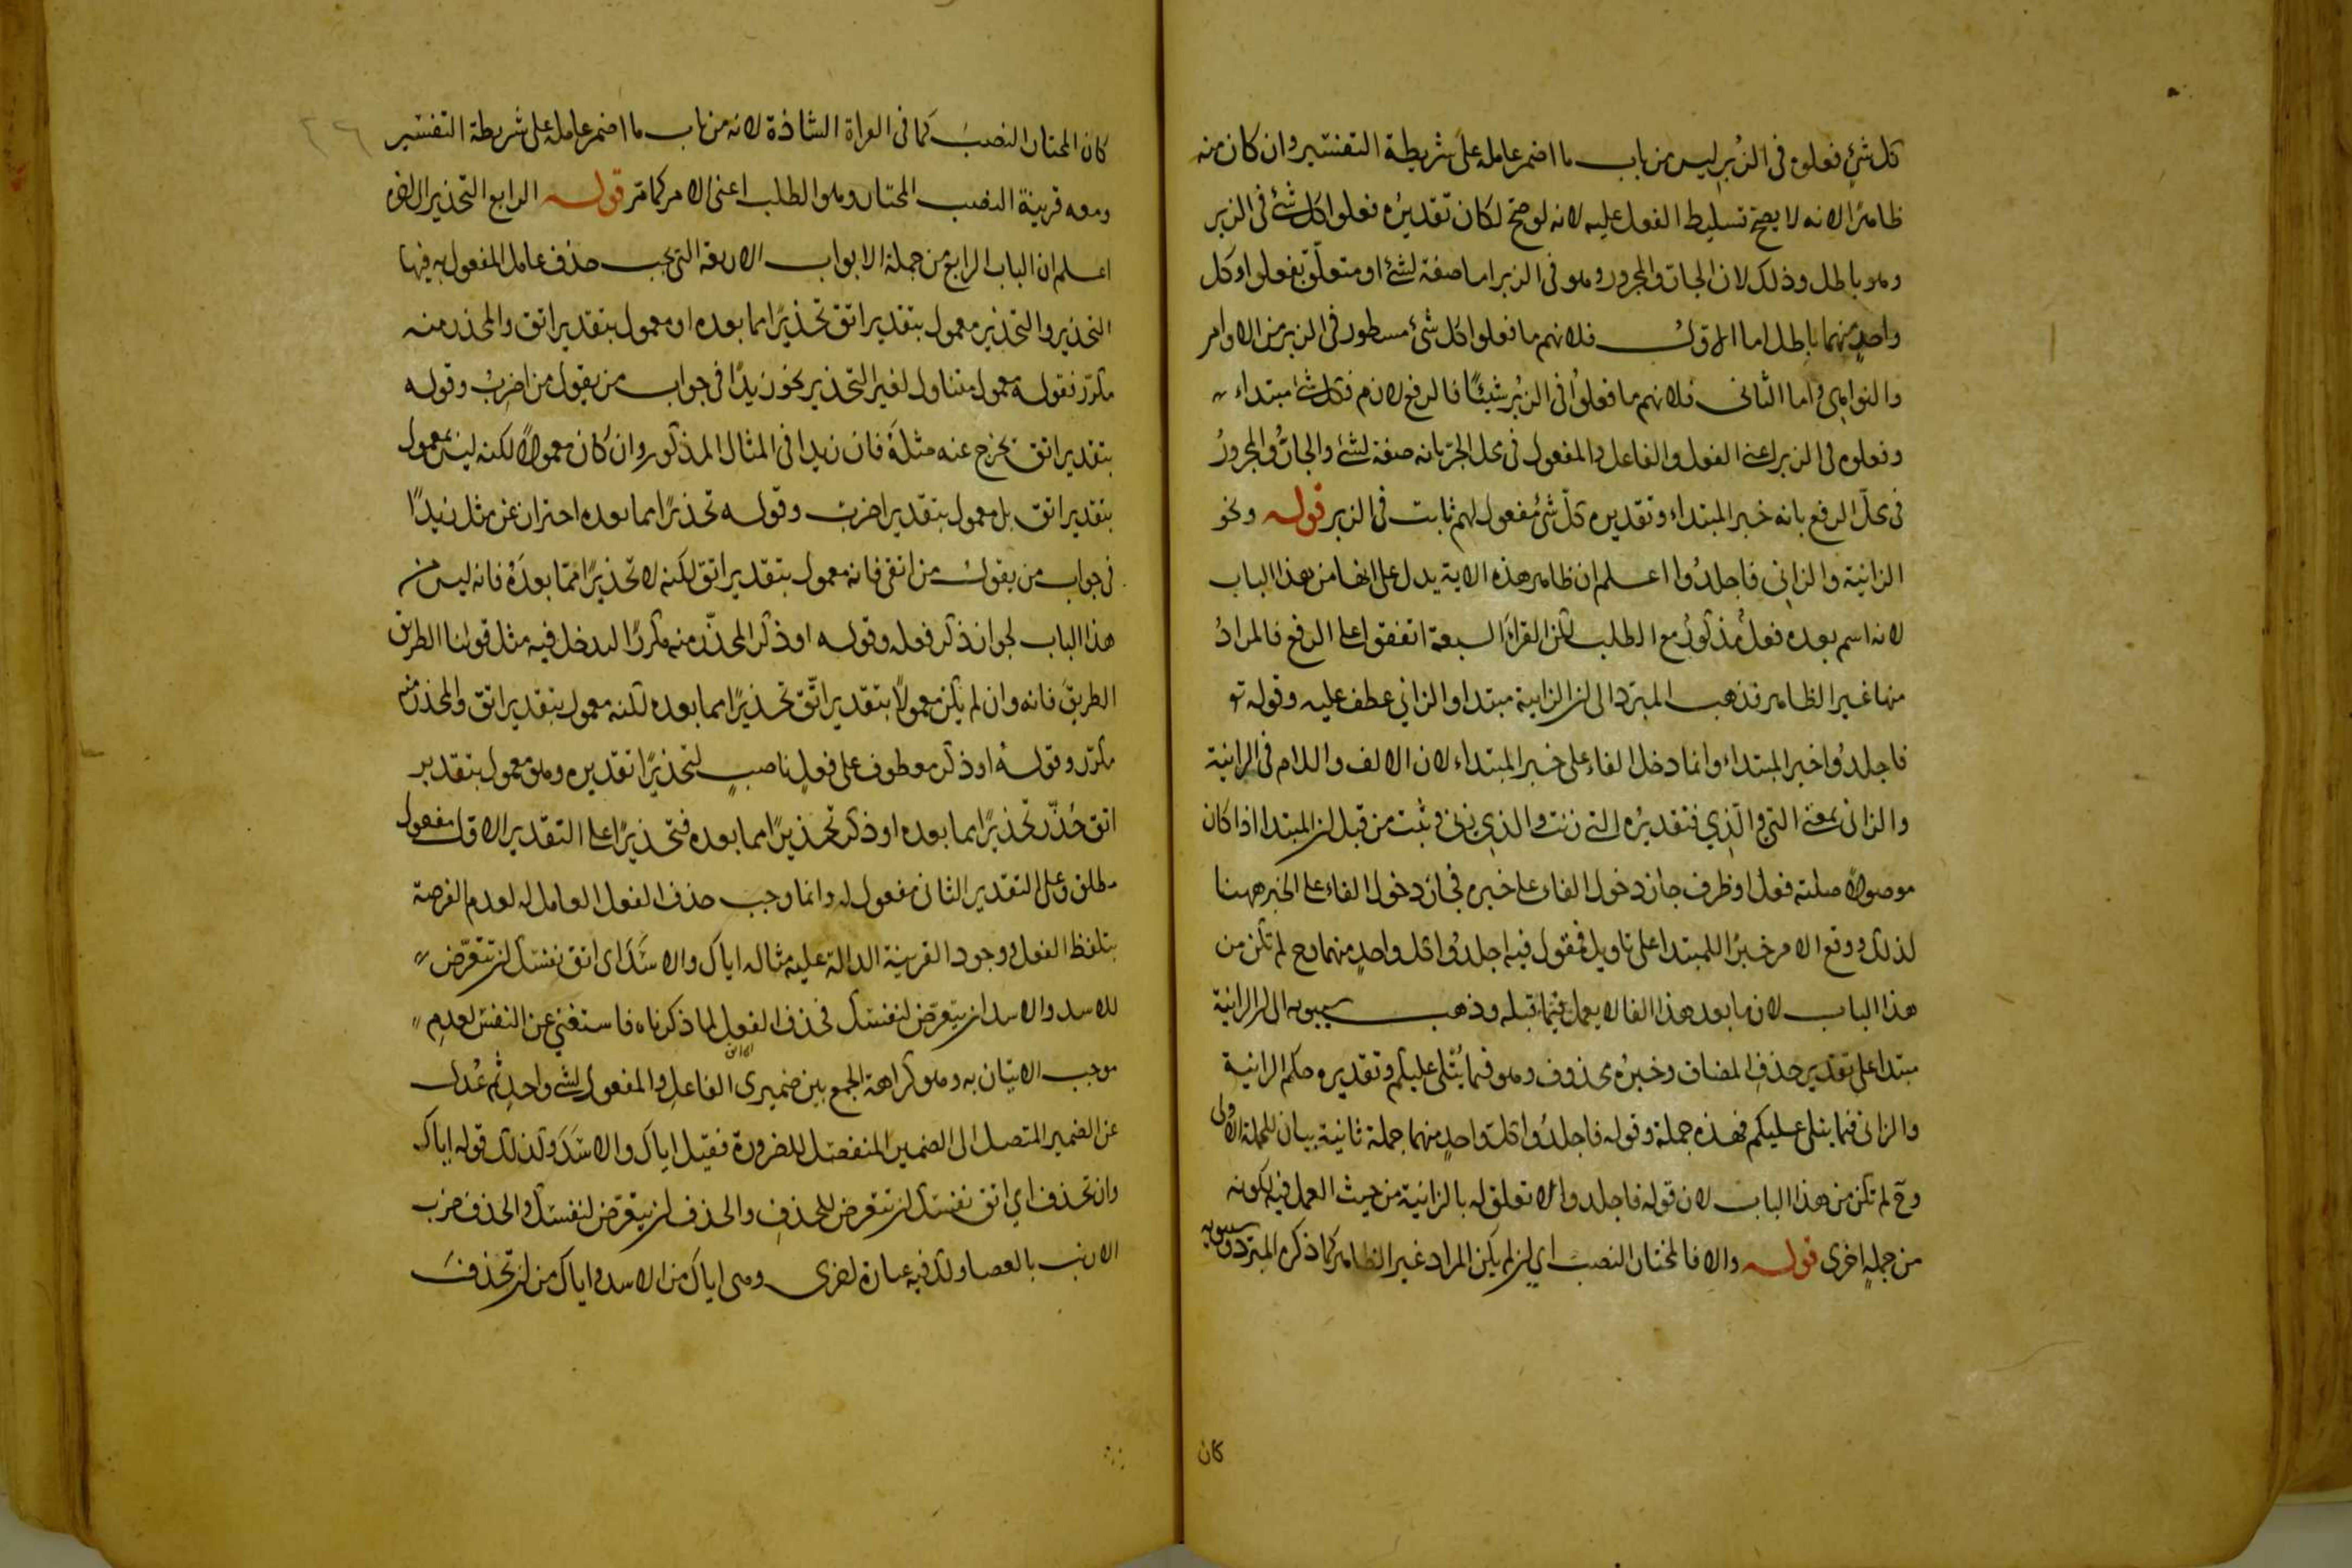 كل شئ فعلوه فى الزبر ليس من باب ما اضمر عامله على شريطة التفسير وان كان منه
ظاهرا لانه لا يصح تسليط الفعل عليه لانه لو صح لكان تقديره فعلوا كل شئ فى الزبر
وهو باطل وذلك لان الجار والمجرور وهو فى الزبر اما صفة لشئ او متعلق بفعلوا وكل
واحد منهما باطل اما الاول فلانهم ما فعلوا كل شئ مسطور فى الزبر من الاوامر
والنواهى واما الثانى فلانهم ما فعلوا فى الزبر شيئا فالرفع لازم فكل شئ مبتداء
وفعلوه فى الزبر اعنى الفعل والفاعل والمفعول فى محل الجر بانه صفة لشئ والجار والمجرور
فى محل الرفع بانه خبر المبتداء وتقديره كل شئ مفعول لهم ثابت فى الزبر قوله ونحو
الزانية والزانى فاجلدوا اعلم ان ظاهر هذه الاية يدل على انها من هذا الباب
لانه اسم بعده فعل مذكور مع الطلب لكن القراء السبعة اتفقوا على الرفع فالمراد
منها غير الظاهر فذهب المبرد الى ان الزانية مبتدا والزانى عطف عليه وقوله تع
فاجلدوا خبر المبتداء وانما دخل الفاء على خبر المبتداء لان الالف واللام فى الزانية
والزانى بمعنى التى والذى فتقديره التى زنت والذى زنى وثبت من قبل ان المبتدا اذا كان
موصولا صلته فعل او ظرف جاز دخول الفاء على خبره فجاز دخول الفاء على الخبر ههنا
لذلك ووقع الامر خبرا للمبتدا على تاويل فمقول فيه اجلدوا كل واحد منهما وح لم تكن من
هذا الباب لان ما بعد هذا الفا لا يعمل فيما قبله وذهب سيبويه الى ان الزانية
مبتدا على تقدير حذف المضاف وخبره محذوف وهو فيما يتلى عليكم وتقديره حكم الزانية
والزانى فيما يتلى عليكم فهذه جملة وقوله فاجلدوا كل واحد منهما جملة ثانية بيان للجملة الاولى
وح لم تكن من هذا الباب لان قوله فاجلدوا لا تعلق له بالزانية من حيث العمل فيه لكونه
من جملة اخرى قوله والا فالمختار النصب اى ان لم يكن المراد غير الظاهر كما ذكره المبرد وسيبويه
كان
كان المختار النصب كما فى القراة الشاذة لانه من باب ما اضمر عامله على شريطة التفسير
ومعه قرينة النصب المختار وهو الطلب اعنى الامر كما مر قوله الرابع التحذير الى اخره
اعلم ان الباب الرابع من جملة الابواب الاربعة التى يجب حذف عامل المفعول به فيها
التحذير والتحذير معمول بتقدير اتق تحذيرا مما بعده او معمول بتقدير اتق والمحذر منه
مكرر فقوله معمول متناول لغير التحذير نحو زيدا فى جواب من يقول من اضرب وقوله
بتقدير اتق يخرج عنه مثله فان زيدا فى المثال المذكور وان كان معمولا لكنه ليس بمعمول
بتقدير اتق بل معمول بتقدير اضرب وقوله تحذيرا مما بعده احتراز عن مثل زيدا
فى جواب من يقول من اتقى فانه معمول بتقدير اتق لكنه لا تحذيرا مما بعده فانه ليس من
هذا الباب لجواز ذكر فعله وقوله او ذكر المحذر منه مكررا ليدخل فيه مثل قولنا الطريق
الطريق فانه وان لم يكن معمولا بتقدير اتق تحذيرا مما بعده لكنه معمول بتقدير اتق والمحذر منه
مكرر وقوله او ذكر معطوف على فعل ناصب لتحذيرا تقديره وهو معمول بتقدير
اتق حذر تحذيرا مما بعده او ذكر تحذيرا مما بعده فتحذيرا على التقدير الاول مفعول
مطلق وعلى التقدير الثانى مفعول له وانما وجب حذف الفعل العامل له لعدم الفرصة
بتلفظ الفعل ووجود القرينة الدالة عليه مثاله اياك والاسد اى اتق نفسك ان تتعرض
للاسد والاسد ان يتعرض لنفسك فحذف الفعل لما ذكرناه فاستغنى عن النفس لعدم
موجب الاتيان به وهو كراهة الجمع بين ضميرى الفاعل والمفعول لشئ واحد ثم عدل
عن الضمير المتصل الى الضمير المنفصل للضرورة فقيل اياك والاسد وكذلك قوله اياك
وان تحذف اى اتق نفسك ان تتعرض للحذف والحذف ان يتعرض لنفسك والحذف ضرب
الارنب بالعصا ولك فيه عبارة اخرى وهى اياك من الاسد واياك من ان تحذف